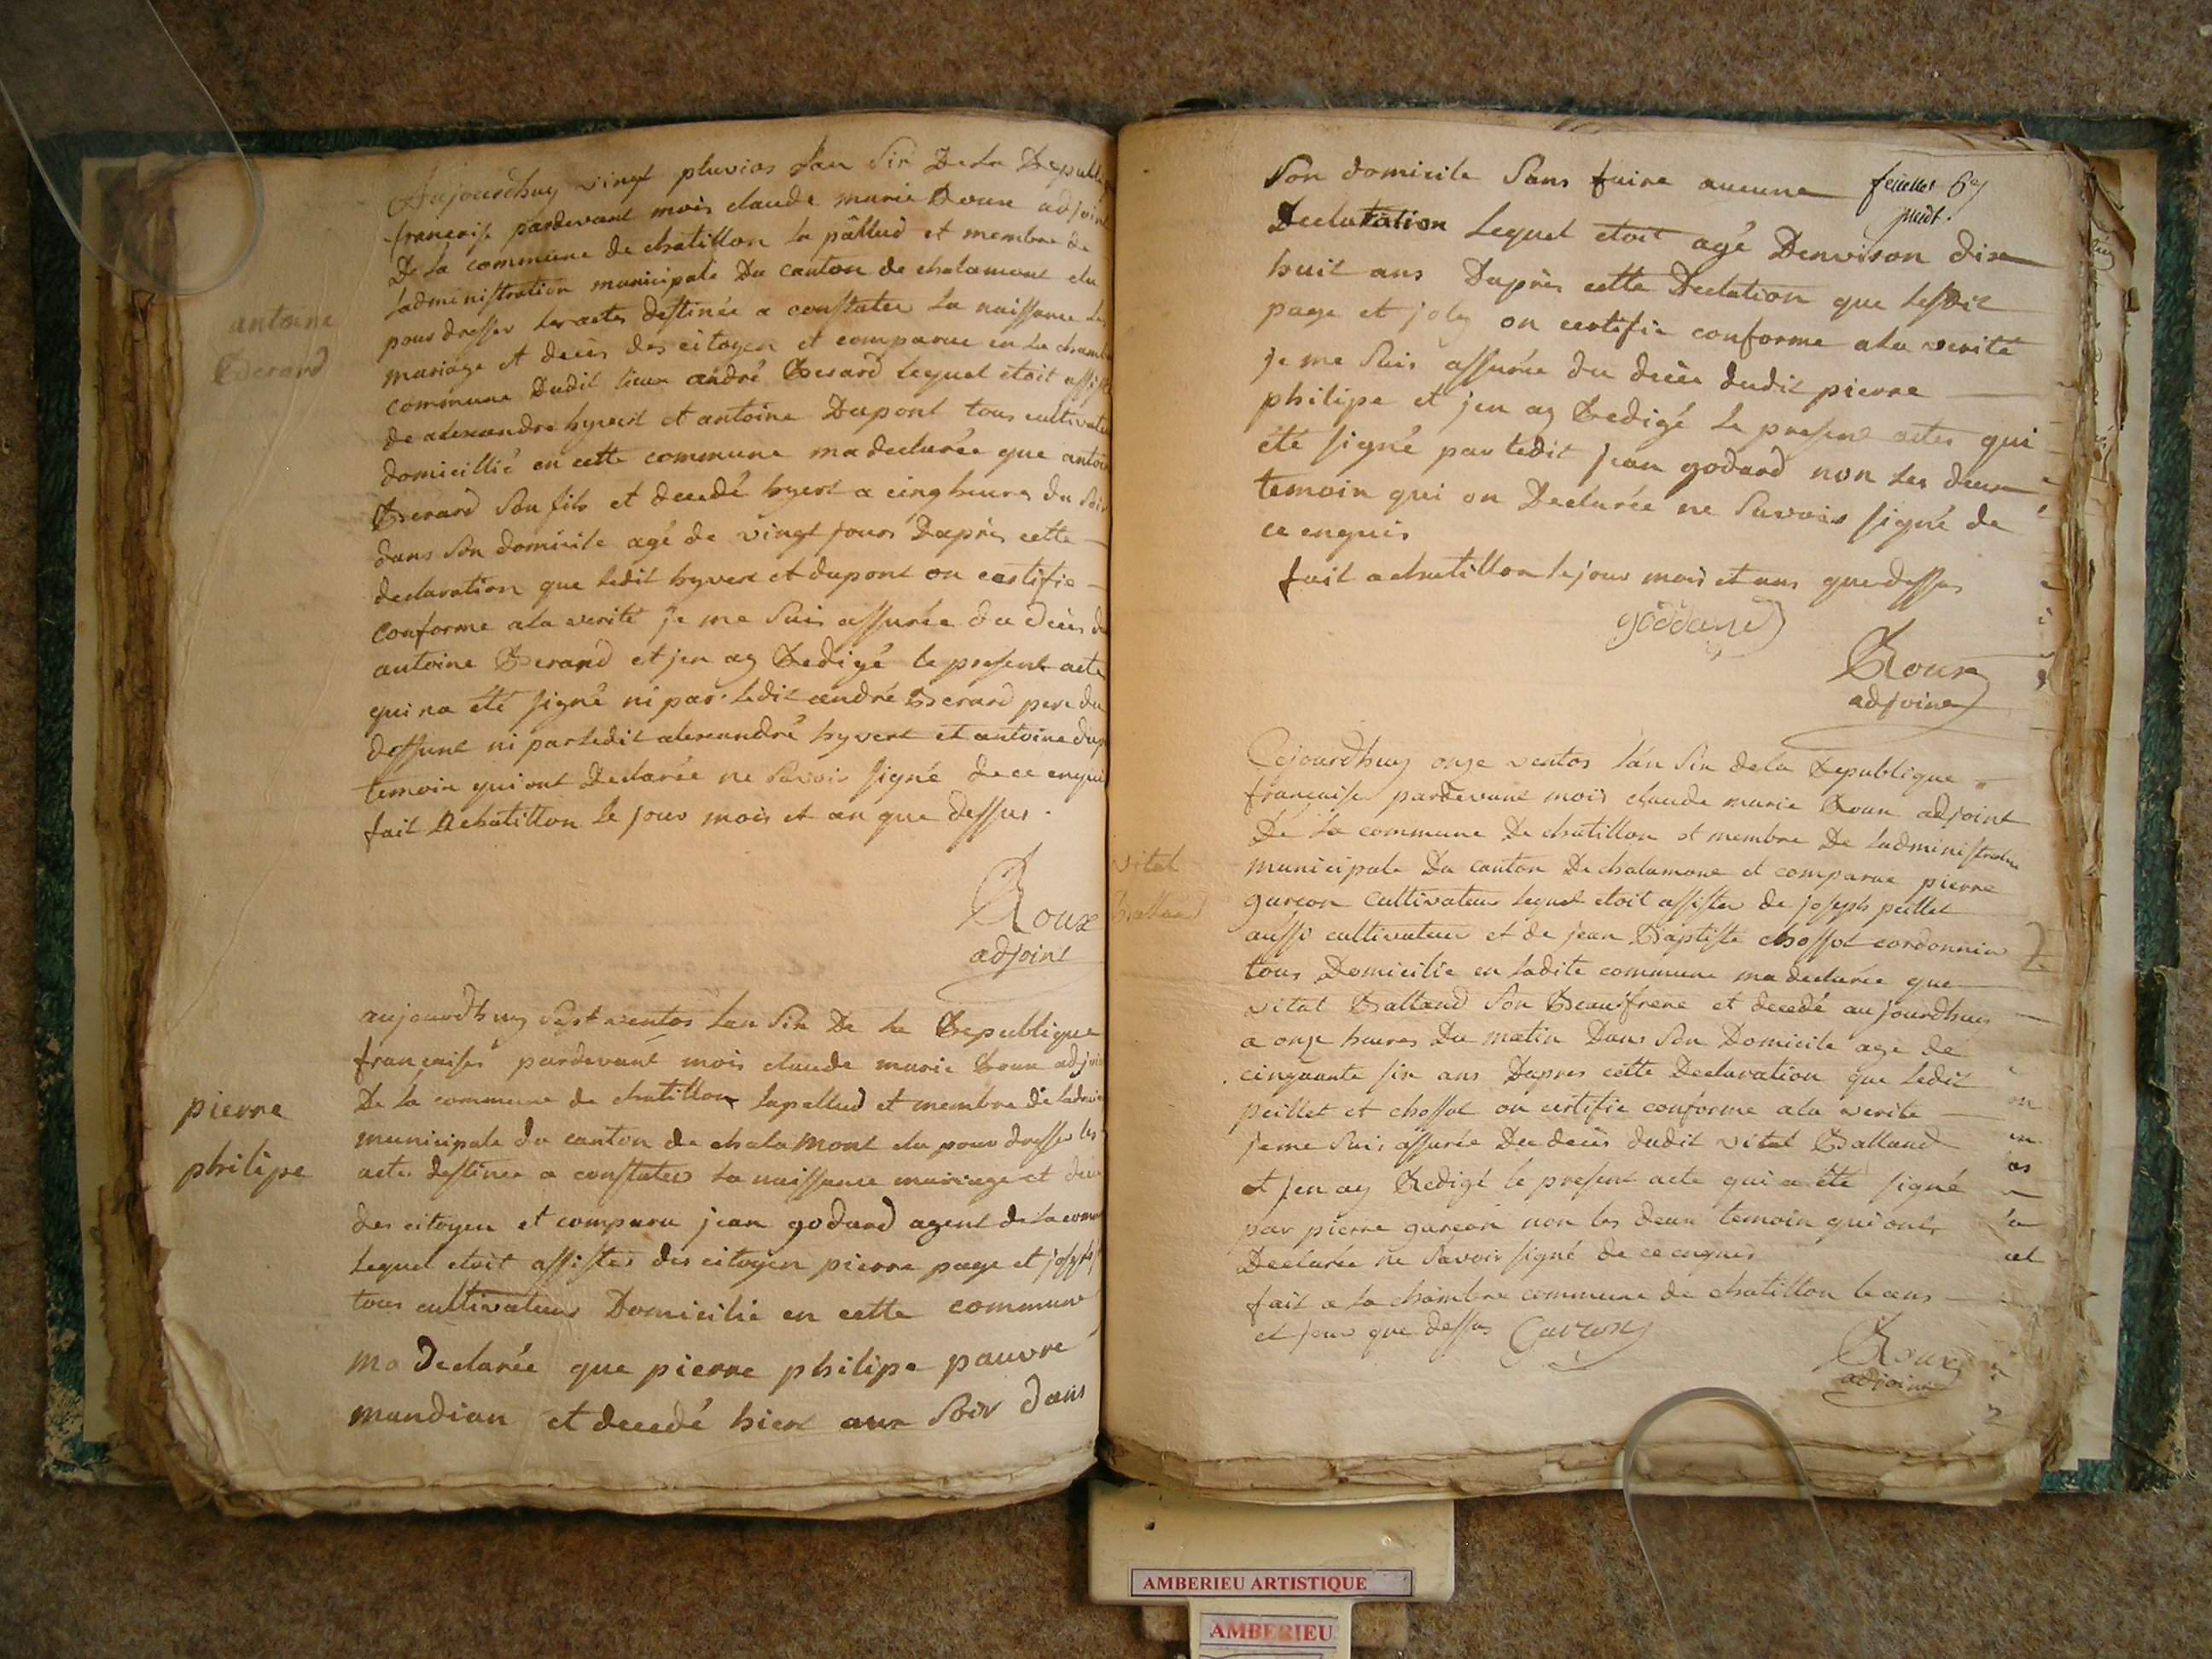 Aujourdhuy vingt pluvios l'an six De la Republi
francaise pardevant mois claude marie Roux adjoint
De la commune de chatillon la pâllud et membre de
Ladministration municipale Du canton de chalamont elu
pour dresser les actes destinée a constater la naissance les
mariage et deces des citoyen et comparue en la chamb
commune Dudit lieux andré Berard lequel etoit assist
de alexandre hyvert et antoine Dupont tous cultivate
domicillié en cette commune ma declarée que antoi
Berard son fils et decedé hyert a cinq heures du soir
dans son domicile agé de vingt jours Daprès cette
declaration que ledit hyvert et dupont on certifie
conforme ala verité je me suis assurée du deces du
antoine Berard et jen ay Redigé le present acte
qui na eté signé ni par ledit andré Berard pere du
deffunt ni par ledit alexandré hyvert et antoine dup
temoin qui ont Declarée ne savoir signé de ce enqui
fait a chatillon le jour mois et an que dessus .
Roux
adjoint
antoine
Berard
aujourdhuy sept ventos lan six De la Republique
francaises pardevant mois claude marie Roux adjoi
De la commune de chatillon lapallud et membre de ladmi
municipale du canton de chalamont elu pour dresser les
acte destinee a constater la naissance mariage et deces
des citoyen et comparu jean godard agent de la comm
Lequel etoit assister des citoyen pierre page et joseph
tous cultivateur Domicilié en cette commune
ma declarée que pierre philipe pauvre
mandian et decedé hiert aux soir dans
pierre
philipe
son domicile sans faire aucune
feuillet 6
Declaration lequel etoit agé Denvison dix
huit ans Daprès cette Declation que lesdit
page et joly on certifie conforme ala verité
je me suis assurée du deces dudit pierre
philipe et jen ay Redigé le present actes qui
eté signé par ledit jean godard non les deux
temoin qui on Declarée ne savoir signé de
ce enquis
fait a chatillon le jour mois et ans que dessus
goddard
Roux
adjoint
Cejourdhuy onze ventos l'an six de la Republique
francaise pardevant mois claude marie Roux adjoint
De la commune De chatillon et membre De ladministration
municipale Du canton De chalamont et comparue pierre
garcon cultivateur lequel etoit assister de joseph peillet
aussi cultivateur et de jean Baptiste chossot cordonnier
tous Domicilie en ladite commune ma declarée que
vital Balland son Beaufrere et decedé aujourdhuy
a onze heures Du matin Dans son Domicile age de
cinquante six ans Dapres cette Declaration que ledit
peillet et chossot on certifie conforme ala verite
je me suis assurée Du deces dudit vital Balland
et jen ay Redigé le present acte qui a eté signé
par pierre garcon non les deux temoin qui ont
Declarée ne savoir signé de ce enquis
fait a la chambre commune de chatillon le ans
et jour que dessus Garcon
Roux
adjoint
vital
Balland
AMBERIEU ARTISTIQUE
AMBERIEU